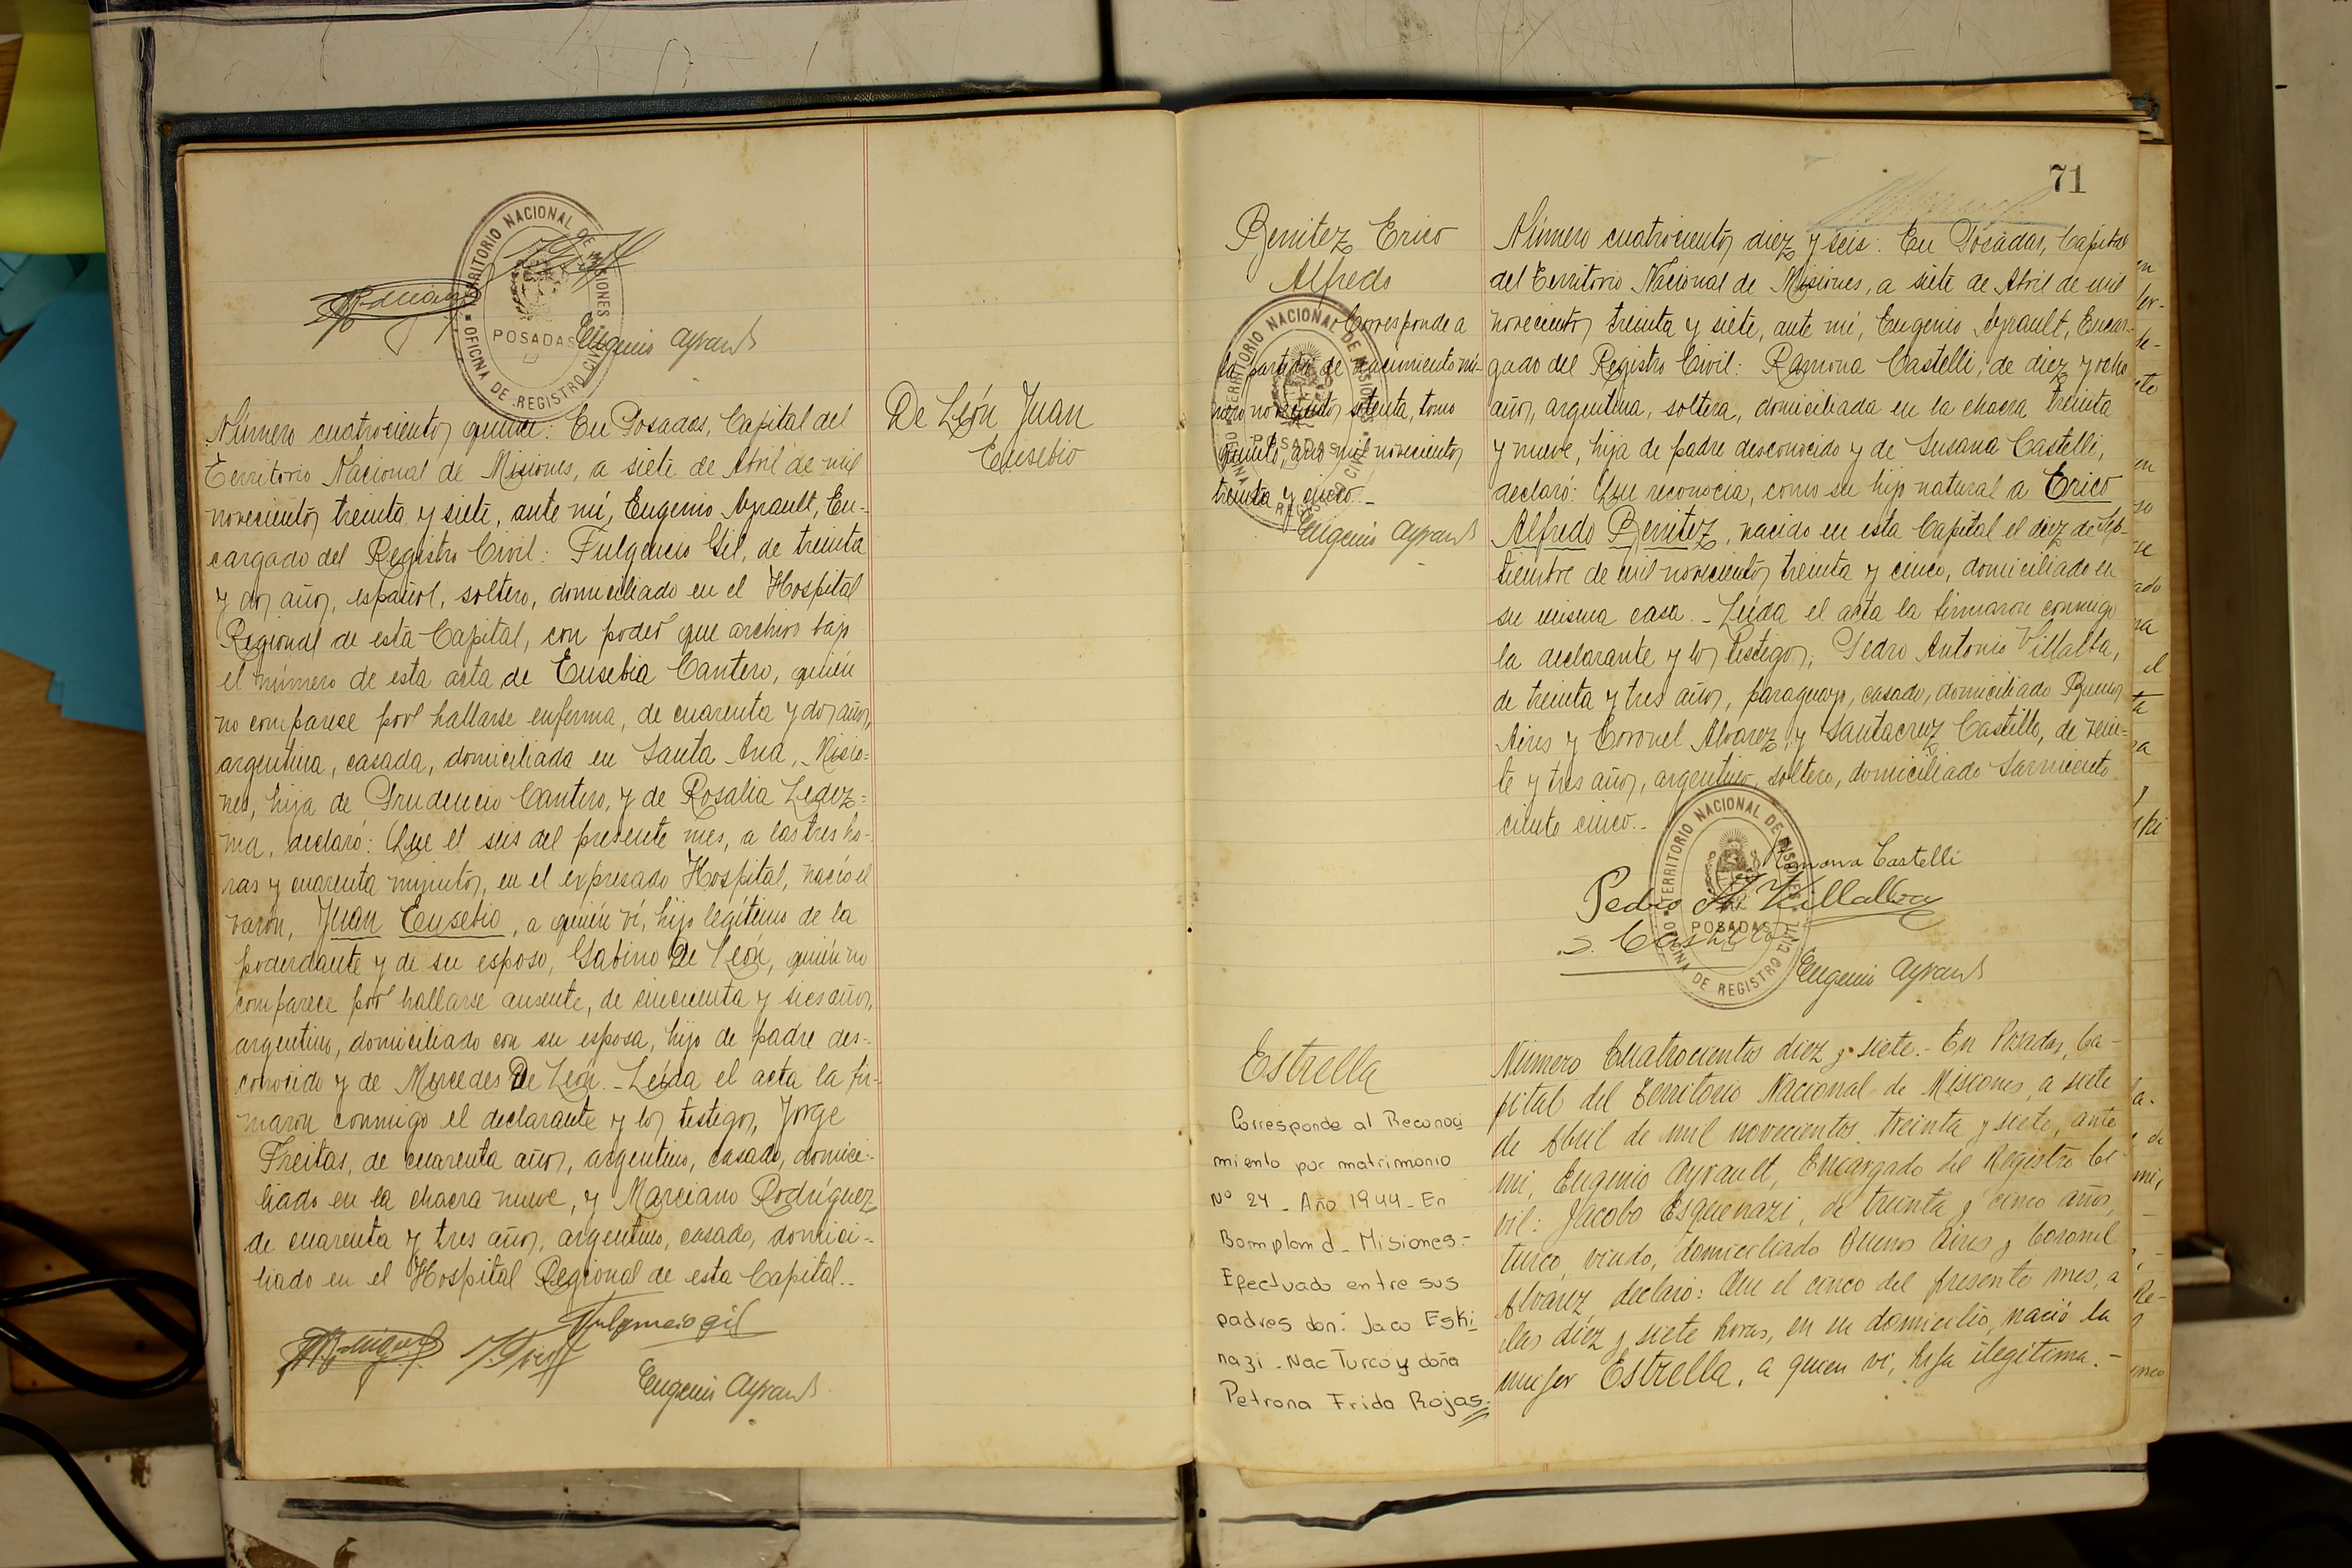 TERRITORIO NACIONAL DE MISIONES
POSADAS
OFICINA DE REGISTRO CIVIL
Eugenio Ayrault
De León Juan
Eusebio
Número cuatrocientos quince: En Posadas, Capital del
Territorio Nacional de Misiones, a siete de Abril de mil
novecientos treinta y siete, ante mí, Eugenio Ayrault, En-
cargado del Registro Civil: Fulgencio Gil, de treinta
y dos años, español, soltero, domiciliado en el Hospital
Regional de esta Capital, con poder que archivo bajo
el número de esta acta de Eusebia Cantero, quién
no comparece por hallarse enferma, de cuarenta y dos años,
argentina, casada, domiciliada en Santa Ana, Misio-
nes, hija de Prudencio Cantero, y de Rosalia Ledez-
ma, declaró: Que el seis del presente mes, a las tres ho-
ras y cuarenta minutos, en el expresado Hospital, nació el
varón, Juan Eusebio, a quién ví, hijo legítimo de la
poderdante y de su esposo, Gabino De León, quién no
comparece por hallarse ausente, de cincuenta y seis años,
argentino, domiciliado con su esposa, hijo de padre des-
conocido y de Mercedes De León.- Leída el acta la fir-
maron conmigo el declarante y los testigos, Jorge
Freitas, de cuarenta años, argentino, casado, domici-
liado en la chacra nueve, y Marciano Rodríguez,
de cuarenta y tres años, argentino, casado, domici-
liado en el Hospital Regional de esta Capital.-
Fulgencio Gil
Eugenio Ayrault
71
Benitez Erico
Alfredo
Corresponde a
la partida de nacimiento nú-
mero novecientos setenta, tomo
quinto, año mil novecientos
treinta y cinco.-
Eugenio Ayrault
TERRITORIO NACIONAL DE MISIONES
POSADAS
OFICINA DE REGISTRO CIVIL
Número cuatrocientos diez y seis: En Posadas, Capital
del Territorio Nacional de Misiones, a siete de Abril de mil
novecientos treinta y siete, ante mí, Eugenio Ayrault, Encar-
gado del Registro Civil: Ramona Castelli, de diez y ocho
años, argentina, soltera, domiciliada en la chacra treinta
y nueve, hija de padre desconocido y de Susana Castelli,
declaró: Que reconocía, como su hijo natural a Erico
Alfredo Benitez, nacido en esta Capital el diez de Sep-
tiembre de mil novecientos treinta y cinco, domiciliado en
su misma casa.- Leída el acta la firmaron conmigo
la declarante y los testigos, Pedro Antonio Villalba,
de treinta y tres años, paraguayo, casado, domiciliado Buenos
Aires y Coronel Alvarez, y Santacruz Castillo, de vein-
te y tres años, argentino, soltero, domiciliado Sarmiento
ciento cinco.-
Ramona Castelli
Pedro A. Villalba
S. Castillo
TERRITORIO NACIONAL DE MISIONES
POSADAS
OFICINA DE REGISTRO CIVIL
Eugenio Ayrault
Estrella
Corresponde al Reconoci
miento por matrimonio
Nº 24 - Año 1944 - En
Bompland - Misiones.-
Efectuado entre sus
padres don: Jaco Eski
nazi - Nac Turco y doña
Petrona Frida Rojas.
Número Cuatrocientos diez y siete.- En Posadas, Ca-
pital del Territorio Nacional de Misiones, a siete
de Abril de mil novecientos treinta y siete, ante
mi, Eugenio Ayrault, Encargado del Registro Ci-
vil: Jacobo Esquenazi, de treinta y cinco años,
turco, viudo, domiciliado Buenos Aires y Coronel
Alvarez, declaró: Que el cinco del presente mes, a
las diez y siete horas, en su domicilio, nació la
mujer Estrella, a quien vi, hija ilegítima.-